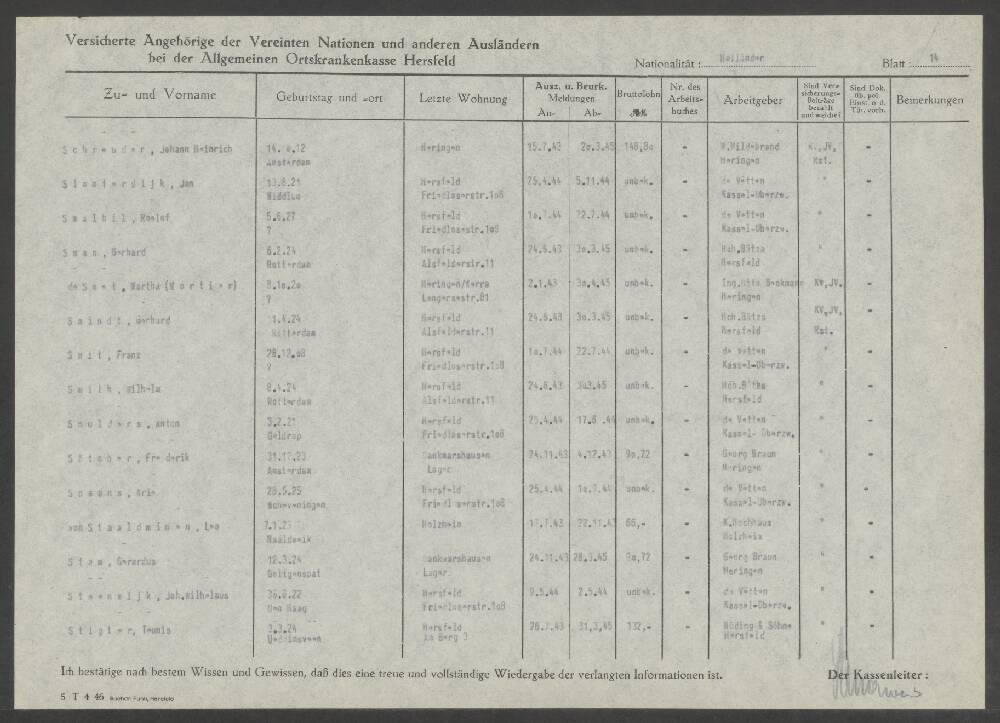 Versicherte Angehörige der Vereinten Nationen und anderen Ausländern
bei der Allgemeinen Ortskrankenkasse Hersfeld
Nationalität : Holländer Blatt : 14
Zu- und Vorname Geburtstag und -ort Letzte Wohnung Ausz. u. Beurk. Meldungen An- Ab- Bruttolohn RM Nr. des Arbeits-buches Arbeitgeber Sind Versicherungs-Beiträge bezahlt und welche? Sind Dok. üb. pol. Einst. o. d. Tät. vorh. Bemerkungen
Schreuder, Johann Heinrich 14. .12 Heringen 15.7.43 20.3.45 148,80 - W.Hildebrand KV,JV, -
Amsterdam Heringen Rst.
Staaterdijk, Jan 13.8.21 Hersfeld 25.4.44 5.11.44 unbek. - de Vetten " -
Friedloserstr.108 Kassel-Oberzw.
Smalbil, Roelof 5.6.27 Hersfeld 10.7.44 22.7.44 unbek. - de Vetten " -
? Friedloserstr.108 Kassel-Oberzw.
Sman, Gerhard 6.2.24 Hersfeld 24.6.43 30.3.45 unbek. - Hch.Bätza " -
Rotterdam Alsfelderstr.11 Hersfeld
de Smet, Martha (Mortier) 8.10.20 Heringen/Werra 2.1.43 30.4.45 unbek. - Ing.Otto KV,JV. -
? Langerestr.81 Heringen
Smindt, Gerhard 1.4.24 Hersfeld 24.6.43 30.3.45 unbek. - Hch.Bätza KV,JV, -
Rotterdam Alsfelderstr.11 Hersfeld Rst.
Smit, Franz 28.12.08 Hersfeld 10.7.44 22.7.44 unbek. - de Vetten " -
? Friedloserstr.108 Kassel-Oberzw.
Smith, Wilhelm 8.4.24 Hersfeld 24.6.43 303.45 unbek. - Hch.Bätha " -
Rotterdam Alsfelderstr.11 Hersfeld
Smulders, Anton 3.2.21 Hersfeld 25.4.44 17.6.44 unbek. - de Vetten " -
Geldrop Friedloserstr.108 Kassel-Oberzw.
Frederik 31.12.23 Dankmarshausen 24.11.43 4.12.43 90,72 - Georg Braun " -
Amsterdam Lager Heringen
Spaans, Arie 28.5.25 Hersfeld 25.4.44 10.7.44 unbek. - de Vetten " -
Scheveningen Friedloserstr.108 Kassel-Oberzw.
von Staalduinen, Leo Holzheim 22.11.43 66,- - K.Hochhaus " -
Maaldwik Holzheim
Stam, Gerardus 12.3.24 Dankmarshausen 24.11.43 28.3.45 90,72 - Georg Braun " -
Lager Heringen
Steenwijk, Joh.Wilhelmus Hersfeld 9.5.44 2.5.44 unbek. - de Vetten " -
Den Haag Friedloserstr.108 Kassel-Oberzw.
Stigter, Teunis 3.3.24 Hersfeld 28.7.43 31.3.45 132,- - Röding & Söhne " -
Waddinxveen Am Berg 3 Hersfeld
Ich bestätige nach bestem Wissen und Gewissen, daß dies eine treue und vollständige Wiedergabe der verlangten Informationen ist. Der Kassenleiter :
S T 4 46 Buchdr. Funk, Hersfeld